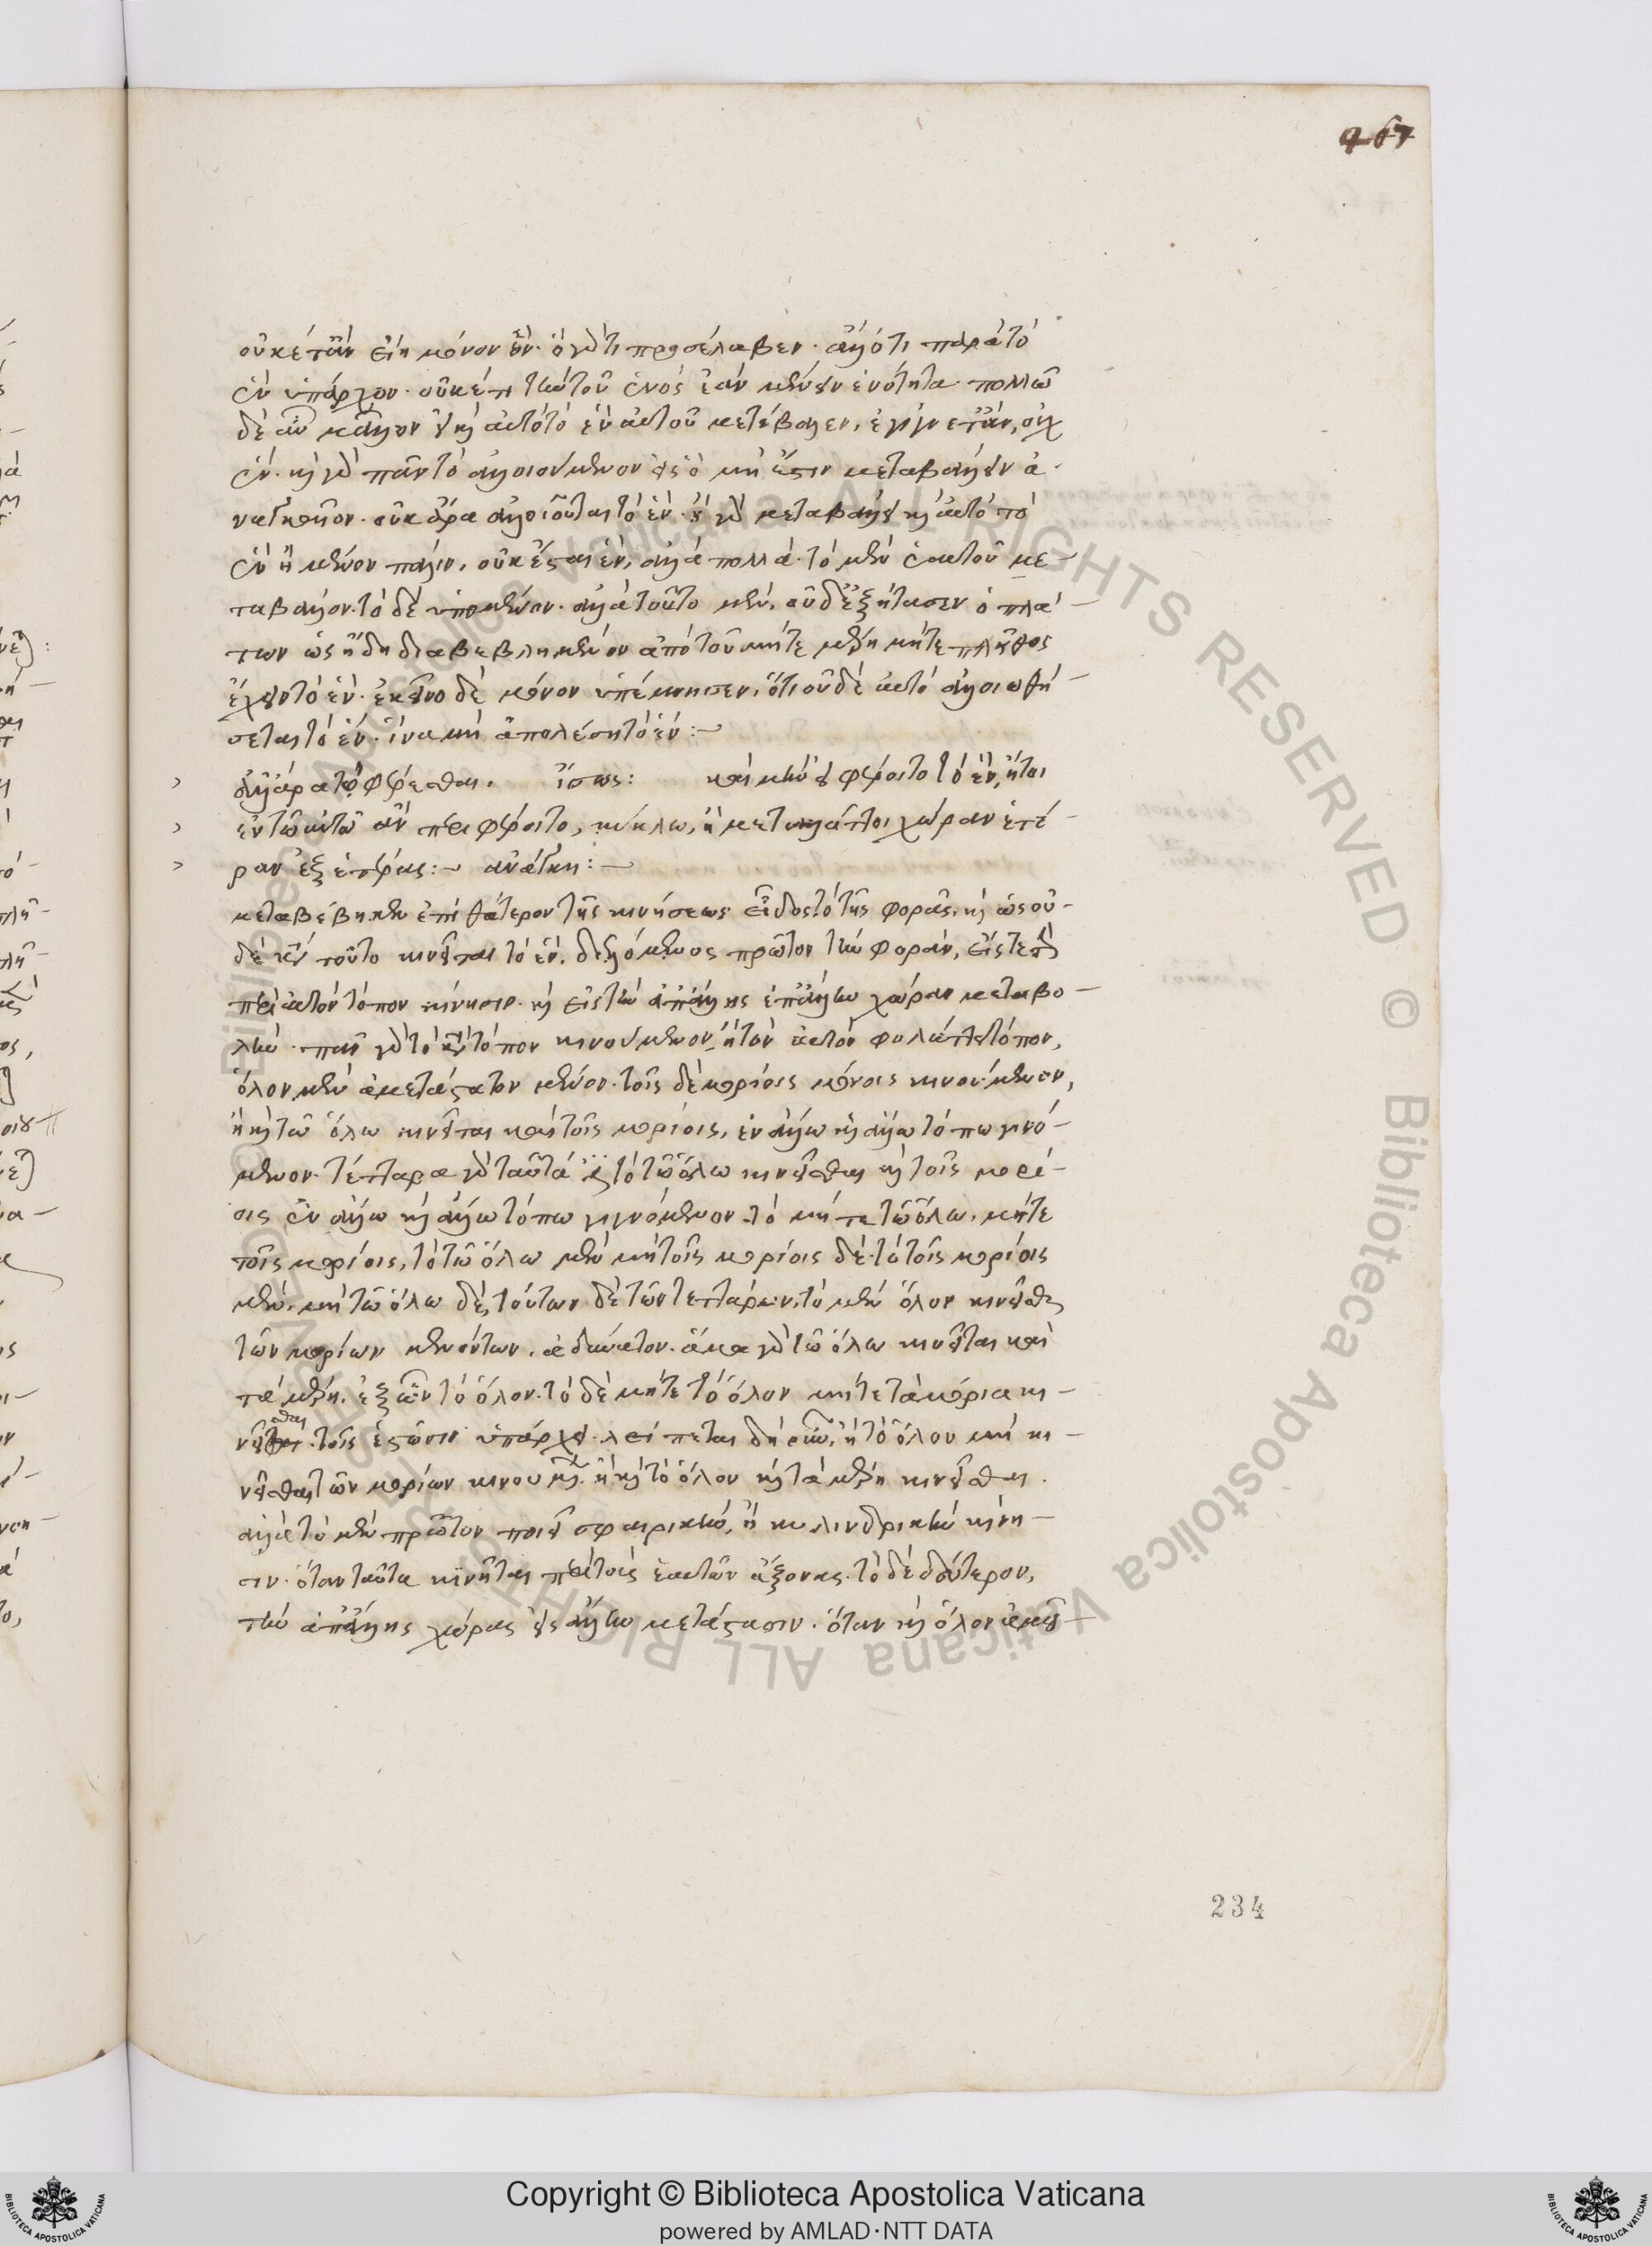 467
οὐκέτ' ἂν εἴη μόνον ἕν. ὃ γάρ τι προσέλαβεν. ἄλλό τι παρὰ τὸ
ἓν ὑπάρχον. οὐκέτι τὴν τοῦ ἑνὸς ἐᾶν μένειν ἑνότητα. πολλῶ
δὲ αὖ μᾶλλον εἰ καὶ αὐτὸ τὸ ἓν αὐτοῦ μετέβαλλεν, ἐγίγνετ' ἂν, οὐχ
ἕν. καὶ γὰρ πᾶν τὸ ἀλλοιούμενον εἰς ὃ μή ἐστιν μεταβάλλειν ἀ-
ναγκαῖον. οὐκ ἄρα ἀλλοιοῦται τὸ ἕν. εἰ γὰρ μεταβάλλει καὶ αὐτὸ τὸ
ἓν ἢ μένον πάλιν, οὐκ ἔσται ἓν, ἀλλὰ πολλά. τὸ μὲν ἑαυτοῦ με-
ταβάλλον. τὸ δὲ ὑπομένον. ἀλλὰ τοῦτο μὲν, οὐδ' ἐξήτασεν ὁ πλά-
των ὡς ἤδη διαβεβλημένον ἀπὸ τοῦ μήτε μέρη μήτε πλῆθος
ἔχειν τὸ ἕν. ἐκεῖνο δὲ μόνον ὑπέμνησεν, ὅτι οὐδὲ αὐτὸ ἀλλοιωθή-
σεται τὸ ἕν. ἵνα μὴ ἀπολέσῃ τὸ ἕν:-
ἀλλ' ἄρα τῷ φέρεσθαι. ἴσως: καὶ μὴν εἰ φέροιτο τὸ ἓν, ἤτοι
ἐν τῶ αὐτῶ ἂν περιφέροιτο, κύκλω, ἢ μεταλλάττοι χώραν ἑτέ-
ραν ἐξ ἑτέρας:- ἀνάγκη:-
μεταβέβηκεν ἐπὶ θάτερον τῆς κινήσεως εἶδος τὸ τῆς φορᾶς. καὶ ὡς οὐ-
δὲ κατὰ τοῦτο κινεῖται τὸ ἕν. διελόμενος πρῶτον τὴν φορὰν, εἴς τε τὴν
περὶ αὐτὸν τόπον κίνησιν. καὶ εἰς τὴν ἀπ' ἄλλης ἐπ' ἄλλην χώραν μεταβο-
λήν. πᾶν γὰρ τὸ κατὰ τόπον κινούμενον, ἢ τὸν αὐτὸν φυλάττει τόπον,
ὅλον μὲν ἀμετάστατον μένον. τοῖς δὲ μορίοις μόνοις κινούμενον,
ἢ καὶ τῶ ὅλω κινεῖται καὶ τοῖς μορίοις, ἐν ἄλλω καὶ ἄλλω τόπω γινό-
μενον. τέτταρα γὰρ ταῦτά ἐστι τὸ τῶ ὅλω κινεῖσθαι καὶ τοῖς μορί-
οις ἐν ἄλλω καὶ ἄλλω τόπω γιγνόμενον. τὸ μήτε τῶ ὅλω. μήτε
τοῖς μορίοις, τὸ τῶ ὅλω μὲν μὴ τοῖς μορίοις δέ. τὸ τοῖς μορίοις
μὲν. μὴ τῶ ὅλω δέ, τούτων δὲ τῶν τεττάρων, τὸ μὲν ὅλον κινεῖσθαι
τῶν μορίων μενόντων, ἀδύνατον. ἅμα γὰρ τῶ ὅλω κινεῖται καὶ
τὰ μέρη. ἐξ ὧν τὸ ὅλον. τὸ δὲ μήτε τὸ ὅλον μήτε τὰ μόρια κι-
νεῖσθαι. τοῖς ἑστῶσιν ὑπάρχει. λείπεται δὴ οὖν, ἢ τὸ ὅλον μὴ κι-
νεῖσθαι τῶν μορίων κινουμένων. ἢ καὶ τὸ ὅλον καὶ τὰ μέρη κινεῖσθαι.
ἀλλὰ τὸ μὲν πρῶτον ποιεῖ σφαιρικὴν, ἢ κυλινδρικὴν κίνη-
σιν. ὅταν ταῦτα κινῆται περὶ τοὺς ἑαυτῶν ἄξονας. τὸ δὲ δεύτερον,
τὴν ἀπ' ἄλλης χώρας εἰς ἄλλην μετάστασιν. ὅταν καὶ ὅλον ἀμεί-
234
© Biblioteca Apostolica Vaticana ALL RIGHTS RESERVED
Copyright © Biblioteca Apostolica Vaticana
powered by AMLAD·NTT DATA